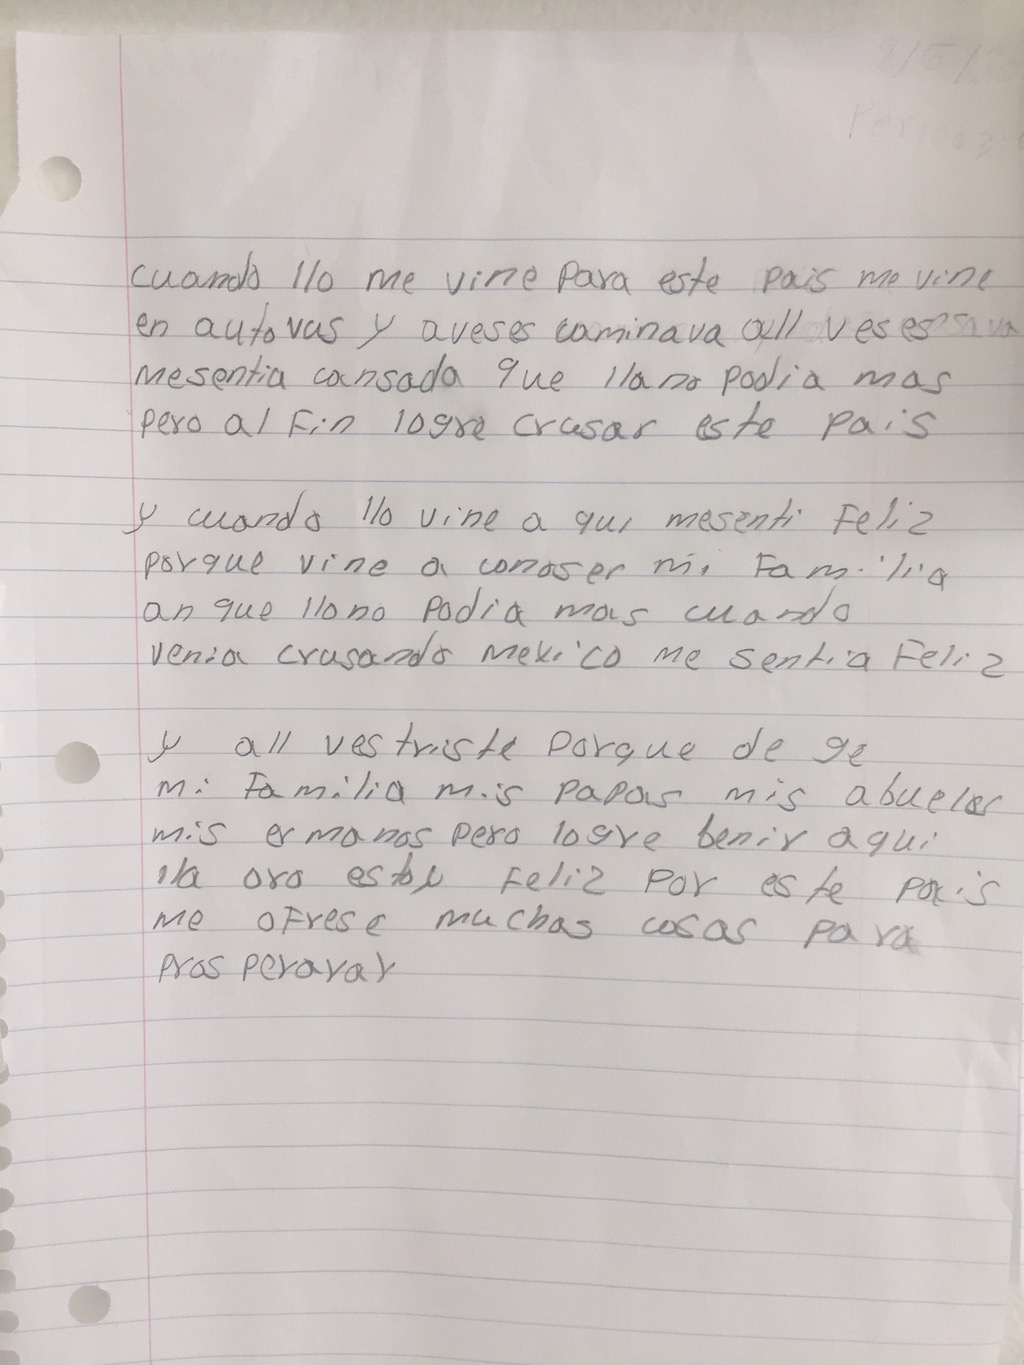 cuando llo me vine para este pais me vine
en autovus y aveses caminava all veses
mesentia cansada que llano podia mas
pero al fin logre crusar este pais
y cuando llo vine a qui mesenti Feliz
porque vine a conoser mi Familia
an que llono podia mas cuando
venia crusando mexico me sentia Feliz
y all vestriste porque de ge
mi Familia mis papas mis abuelos
mis ermanos pero logre benir aqui
lla ora estoy Feliz por este pais
me ofrese muchas cosas para
prosperarar